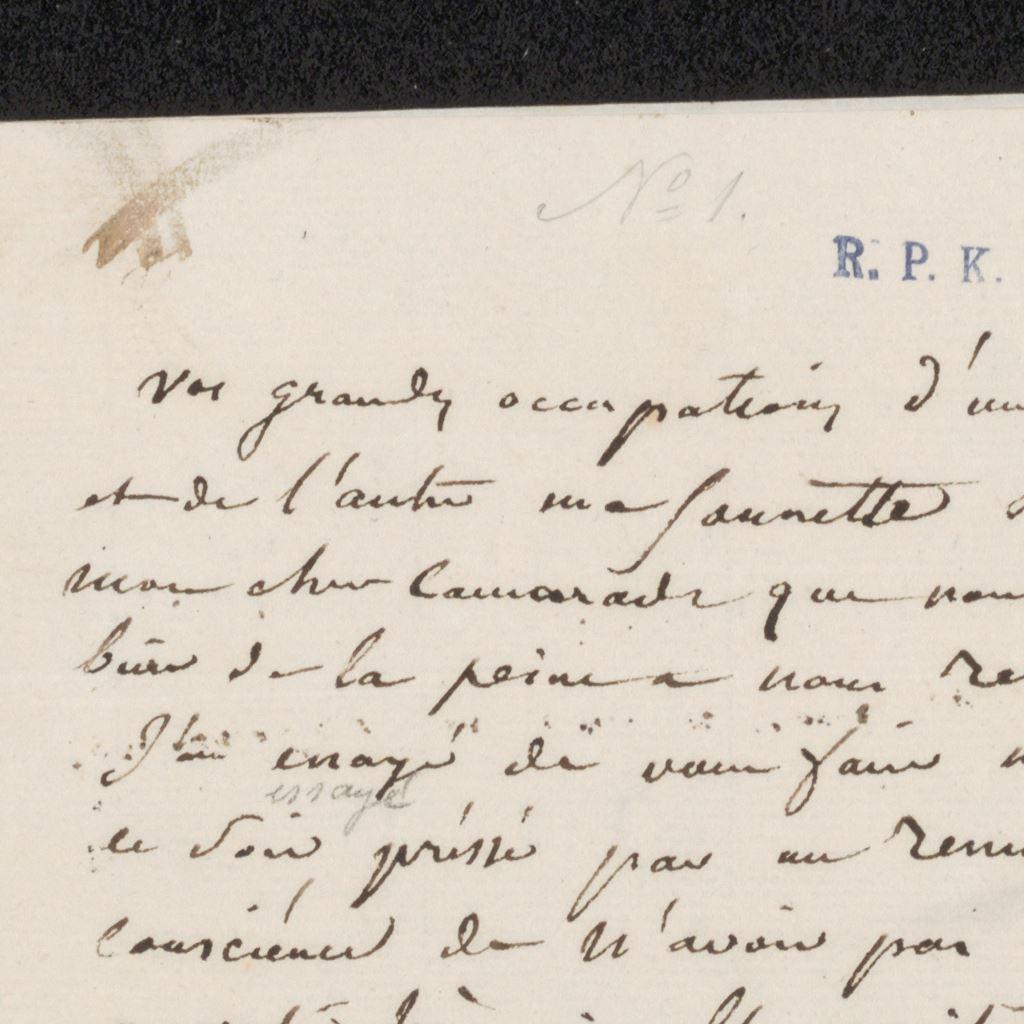 No 1.
R. P. K.
Vos grandes occupations d'un
et de l'autre ma sonnette
mon cher camarade que nous
bien de la peine a nous re
J'ai essayé de vous faire
essayé
ce soir préssé par un rem
consciénce de n'avoir pas